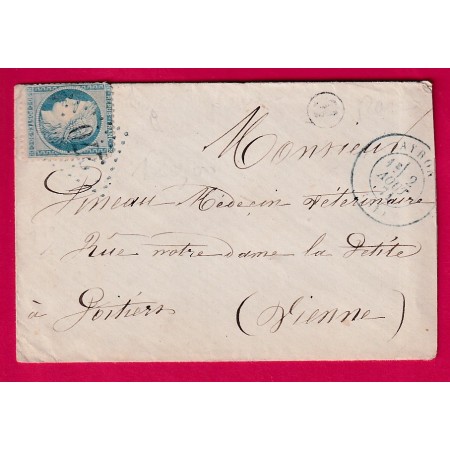 Monsieur
Pineau Médecin Vétérinaire
Rue notre dame la Petite
à Poitiers (Vienne)
AYRON
2
AOUT